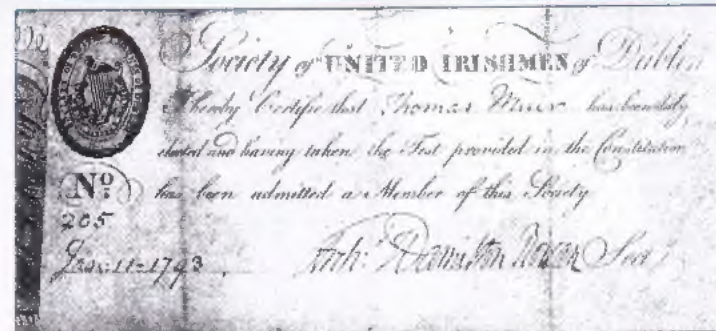 Society of UNITED IRISHMEN of Dublin
I hereby Certifie that Thomas Muir has been duly
elected and having taken the Test provided in the Constitution
has been admitted a Member of this Society
No
205
Jan: 11 - 1793. Arch: Hamilton Rowan Secy